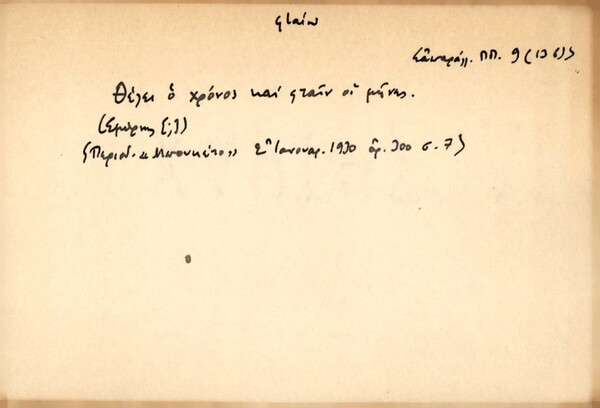 φταίω
ΠΠ. 9 (136)}
Θέλει ὁ χρόνος καί φταῖν οἱ μῆνες.
(Σμύρνης [;])
{Περιοδ. «Μπουκέτο» 2α Ἰανουαρ. 1930 ἀρ. 300 σ. 7}